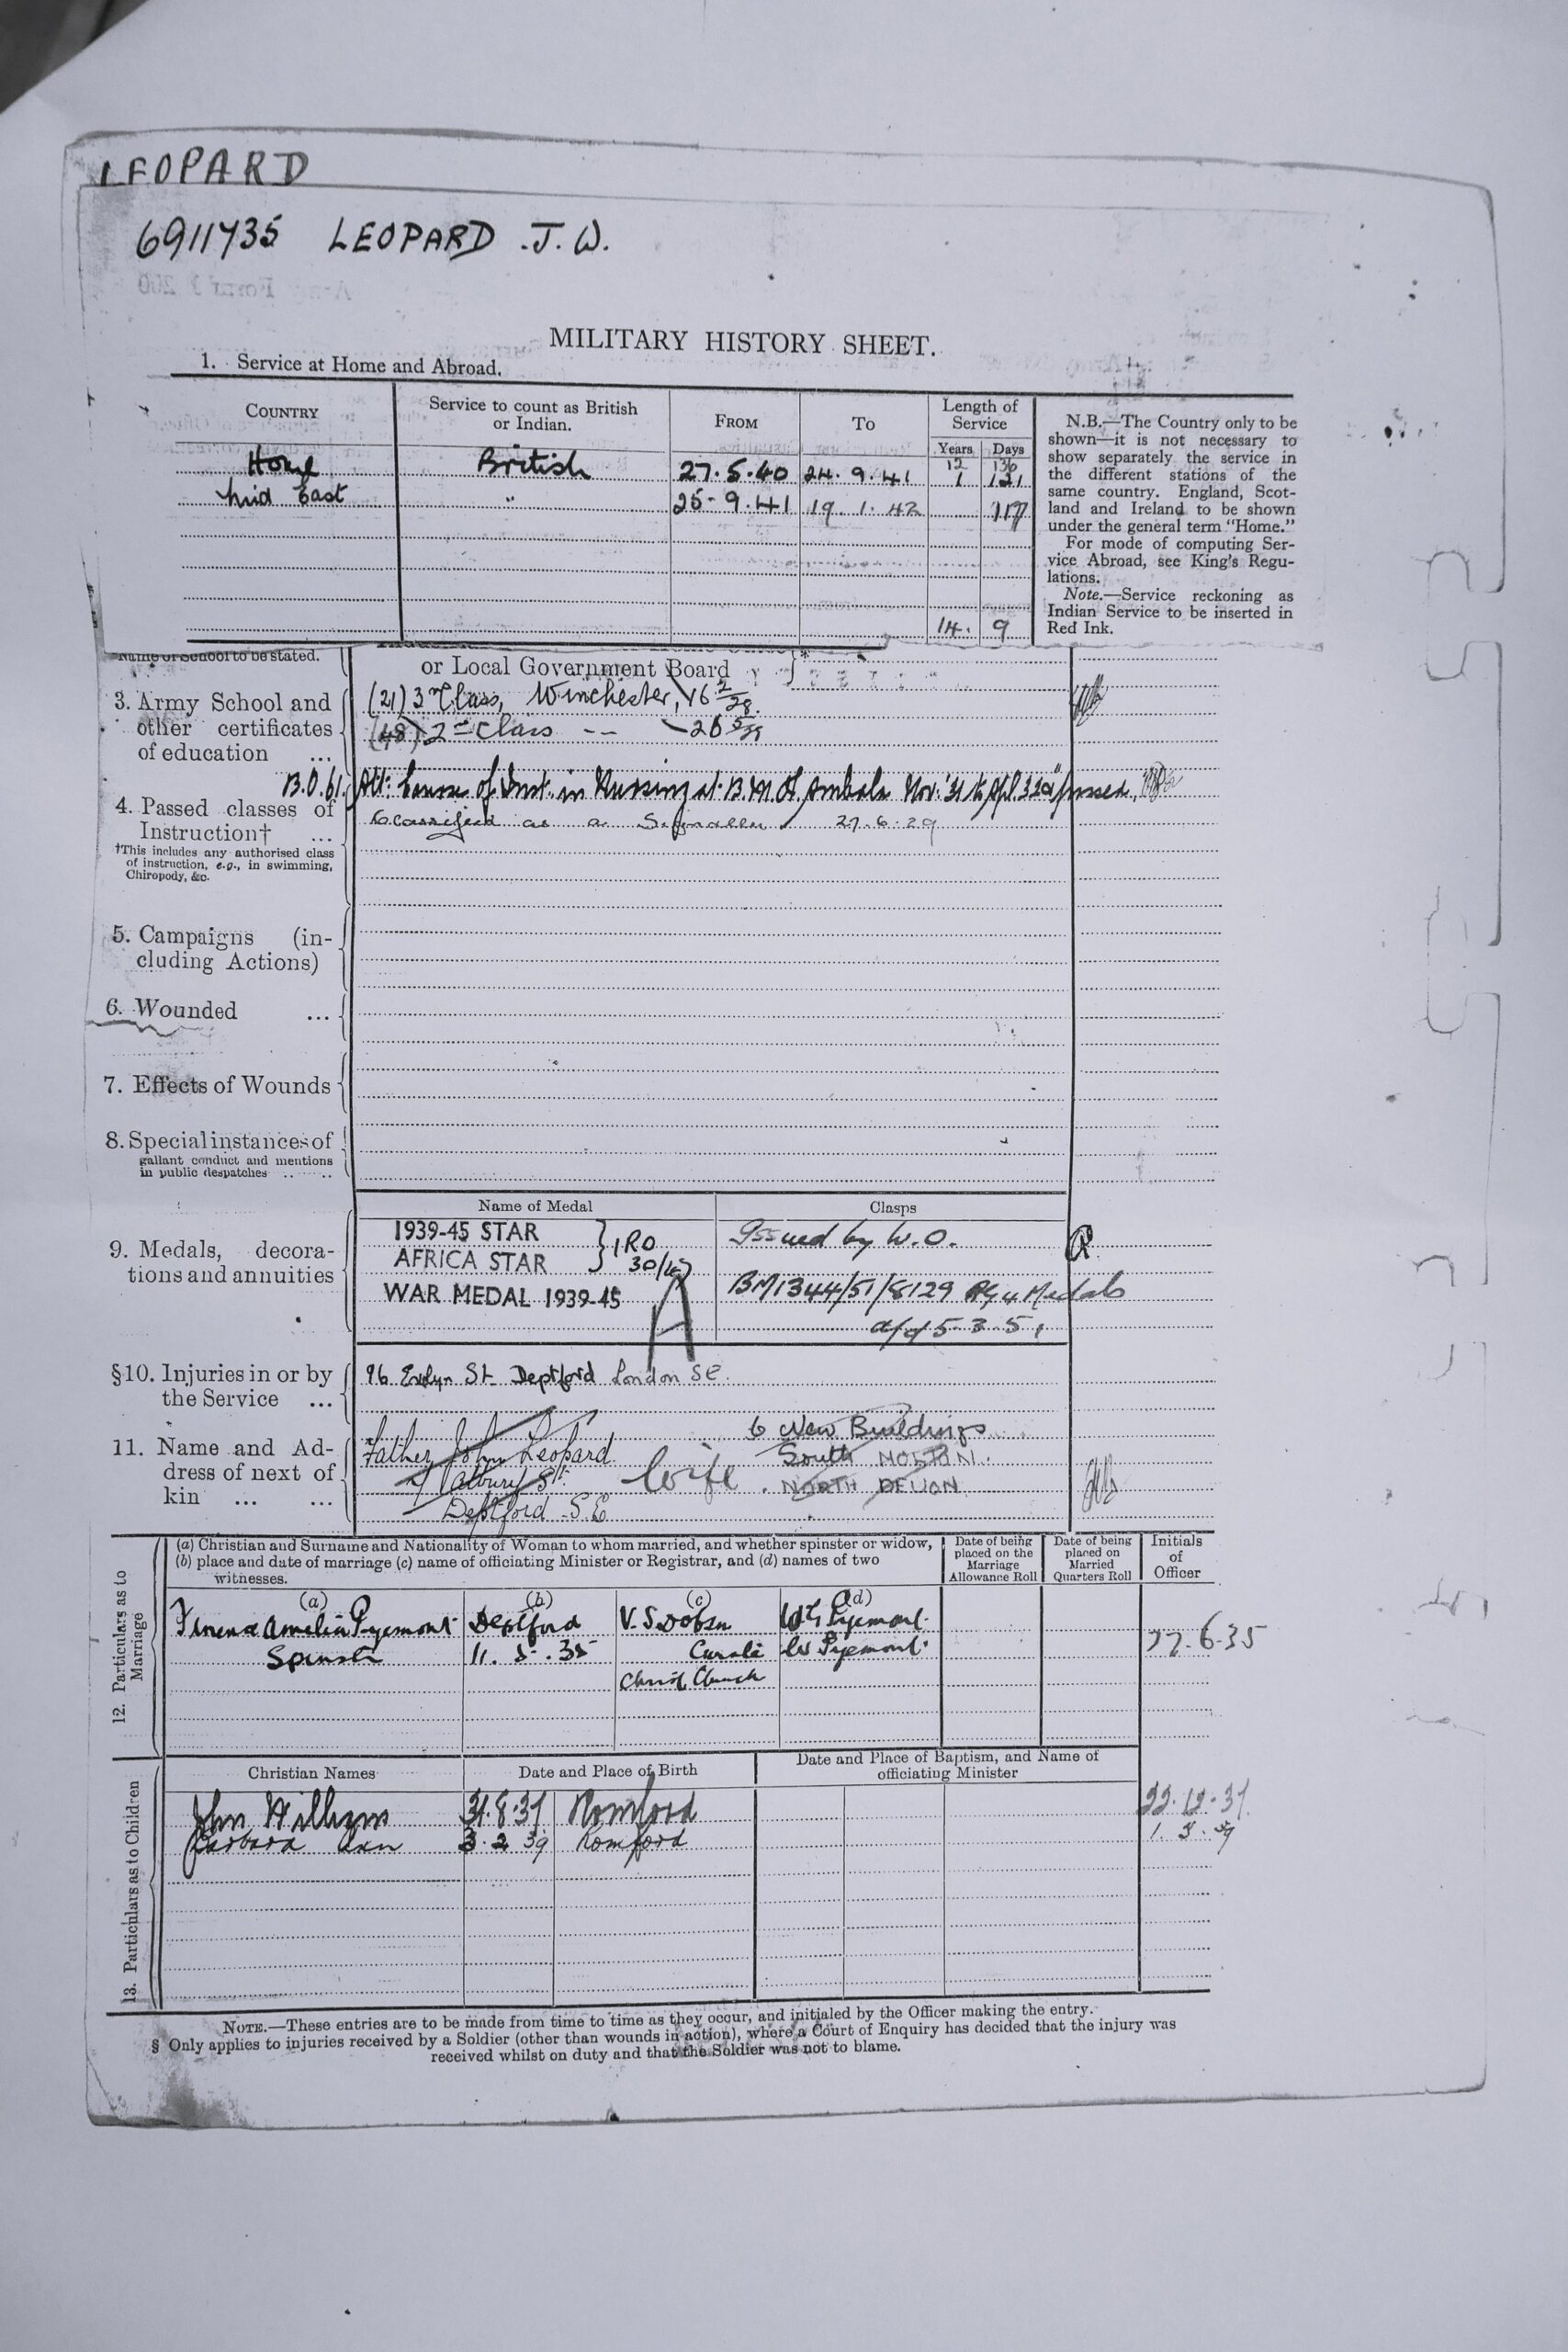 LEOPARD
6911735 LEOPARD .J.W.
MILITARY HISTORY SHEET.
1. Service at Home and Abroad.
COUNTRY
Service to count as British or Indian.
FROM
To
Length of Service
Years Days
12 136
Home British 27.5.40 24.9.41 1 121
Mid East " 25-9.41 19.1.42 117
14. 9
N.B.—The Country only to be
shown—it is not necessary to
show separately the service in
the different stations of the
same country. England, Scot-
land and Ireland to be shown
under the general term "Home."
For mode of computing Ser-
vice Abroad, see King's Regu-
lations.
Note.—Service reckoning as
Indian Service to be inserted in
Red Ink.
Name of School to be stated.
or Local Government Board
3. Army School and
other certificates
of education ...
(21) 3rd Class, Winchester, 16 2/28.
(48) 2nd Class -- 26
B.O.61.
Att: Course of Inst. in Nursing at B.M.H. Ambala Nov. '31 to Apl 32 "passed"
4. Passed classes of
Instruction† ...
Classified as a Signaller 27.6.29
†This includes any authorised class
of instruction, e.g., in swimming,
Chiropody, &c.
5. Campaigns (in-
cluding Actions)
6. Wounded ...
7. Effects of Wounds
8. Special instances of
gallant conduct and mentions
in public despatches .. ..
Name of Medal
Clasps
9. Medals, decora-
tions and annuities
1939-45 STAR
AFRICA STAR
WAR MEDAL 1939-45
RO
A
Issued by W.O.
BM1344/51/8129 Medals
5.3.51
§10. Injuries in or by
the Service ...
96 Evelyn St Deptford London SE.
11. Name and Ad-
dress of next of
kin ... ...
Father John Leopard
Albury St.
Deptford S.E
Wife
6 New Buildings
South MOLTON.
NORTH DEVON
12. Particulars as to Marriage
(a) Christian and Surname and Nationality of Woman to whom married, and whether spinster or widow,
(b) place and date of marriage (c) name of officiating Minister or Registrar, and (d) names of two
witnesses.
Date of being placed on the Marriage Allowance Roll
Date of being placed on Married Quarters Roll
Initials of Officer
(a) (b) (c) (d)
Amelia Pyemont Deptford V. S Dobson Pyemont
Spinster 11.5.35 Curate W Pyemont
Christ Church
27.6.35
13. Particulars as to Children
Christian Names
Date and Place of Birth
Date and Place of Baptism, and Name of officiating Minister
John William 31.8.37 Romford
Barbara Ann 3.2.39 Romford
NOTE.—These entries are to be made from time to time as they occur, and initialed by the Officer making the entry.
§ Only applies to injuries received by a Soldier (other than wounds in action), where a Court of Enquiry has decided that the injury was
received whilst on duty and that the Soldier was not to blame.